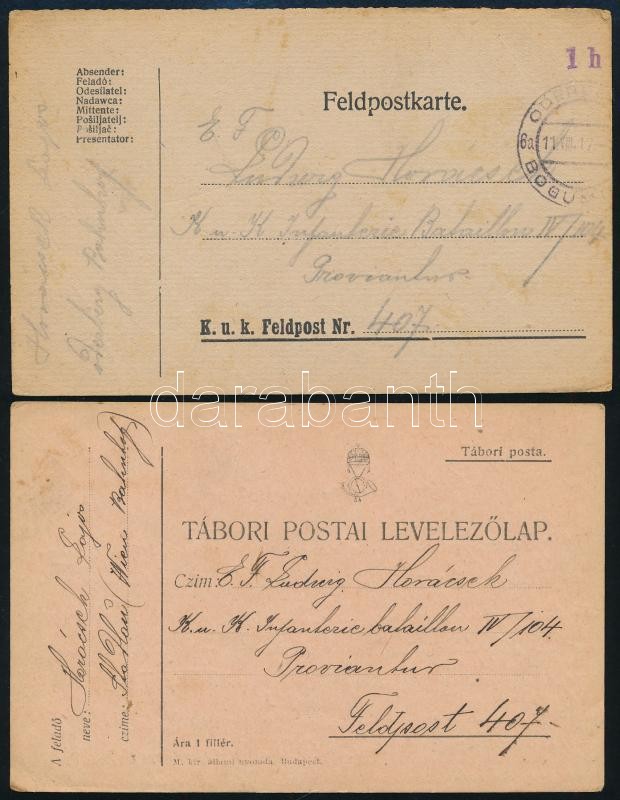 Absender:
Feladó:
Odesílatel:
Nadawca:
Mittente:
Pošiljatelj:
Pošiljač:
Presentator:
Horacsek Lajos
Oderberg Bahnhof
1 h
Feldpostkarte.
ODERB
6a 11.VIII.17
BOGU
E. F.
Ludwig Horacsek
K. u. K. Infanterie Bataillon IV/104
Proviantur
K. u. k. Feldpost Nr. 407.
darabanth
Tábori posta.
TÁBORI POSTAI LEVELEZŐLAP.
Czim: E. F. Ludwig Horácsek
K. u. K. Infanterie bataillon IV/104
Proviantur
Feldpost 407-
A feladó
neve: Horácsek Lajos
czíme: (Wien Bahnhof)
Ára 1 fillér.
M. kir. állami nyomda. Budapest.